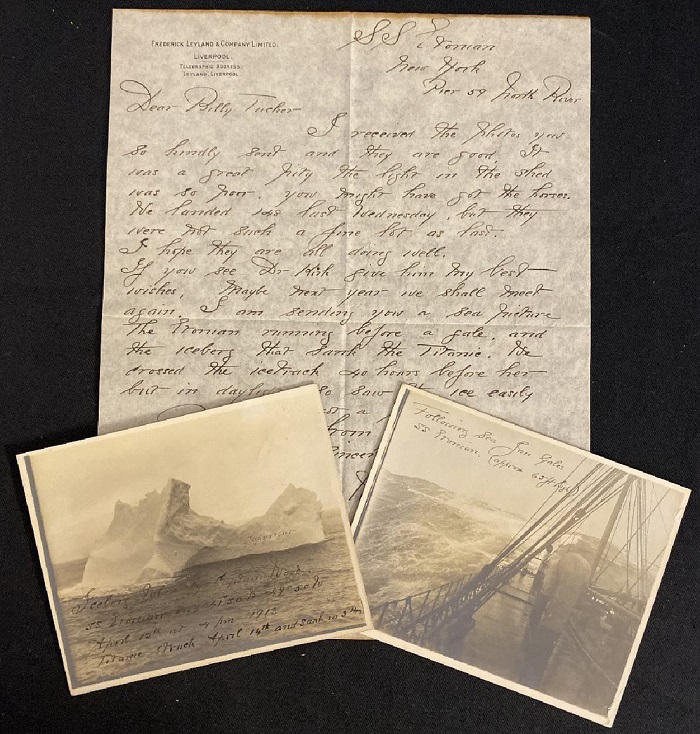 FREDERICK LEYLAND & COMPANY LIMITED.
LIVERPOOL.
TELEGRAPHIC ADDRESS:
LEYLAND, LIVERPOOL
SS Etonian
New York
Pier 59 North River
Dear Billy Tucker
I received the photos you
so kindly sent and they are good. It
was a great pity the light in the shed
was so poor. you might have got the horses.
We landed last Wednesday, but they
were not such a fine lot as last.
I hope they are all doing well.
If you see Dr Kirk give him my best
wishes. Maybe next year we shall meet
again. I am sending you a sea picture
The Etonian running before a gale, and
the iceberg that sank the Titanic. We
crossed the icetrack 40 hours before her
but in so saw the ice easily
a
from
Following Sea. Gale
SS Etonian. (approx
Copyright
Iceberg taken by Captain Wood
SS Etonian in
April 12th at 4 pm 1912
Titanic Struck April 14th and sank in 3 hrs